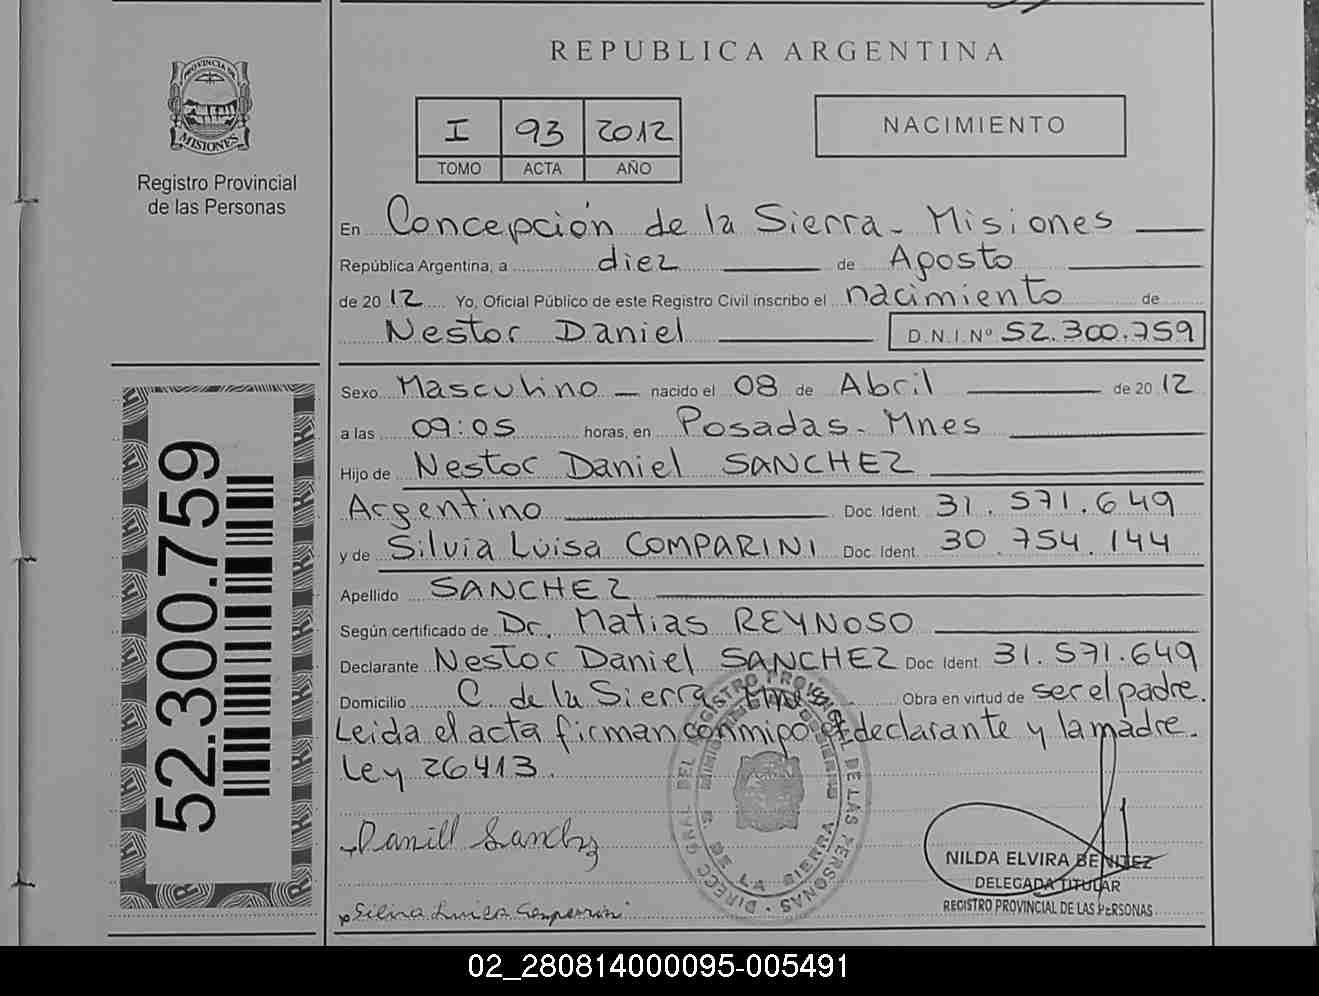 REPUBLICA ARGENTINA
PROVINCIA DE
MISIONES
Registro Provincial
de las Personas
I 93 2012
TOMO ACTA AÑO
NACIMIENTO
En Concepción de la Sierra - Misiones
República Argentina, a diez de Agosto
de 2012 Yo, Oficial Público de este Registro Civil inscribo el nacimiento de
Nestor Daniel D.N.I.Nº 52.300.759
Sexo Masculino nacido el 08 de Abril de 2012
a las 09:05 horas, en Posadas - Mnes
Hijo de Nestor Daniel SANCHEZ
Argentino Doc. Ident. 31.571.649
y de Silvia Luisa COMPARINI Doc. Ident. 30.754.144
Apellido SANCHEZ
Según certificado de Dr. Matias REYNOSO
Declarante Nestor Daniel SANCHEZ Doc Ident 31.571.649
Domicilio C. de la Sierra Mnes Obra en virtud de ser el padre.
Leida el acta firman conmigo el declarante y la madre.
Ley 26413.
52.300.759
Daniel Sanchez
Silvia Luisa Comparini
DIRECC GRAL DEL REGISTRO PROVINCIAL DE LAS PERSONAS
DE LA SIERRA
NILDA ELVIRA BENITEZ
DELEGADA TITULAR
REGISTRO PROVINCIAL DE LAS PERSONAS
02_280814000095-005491